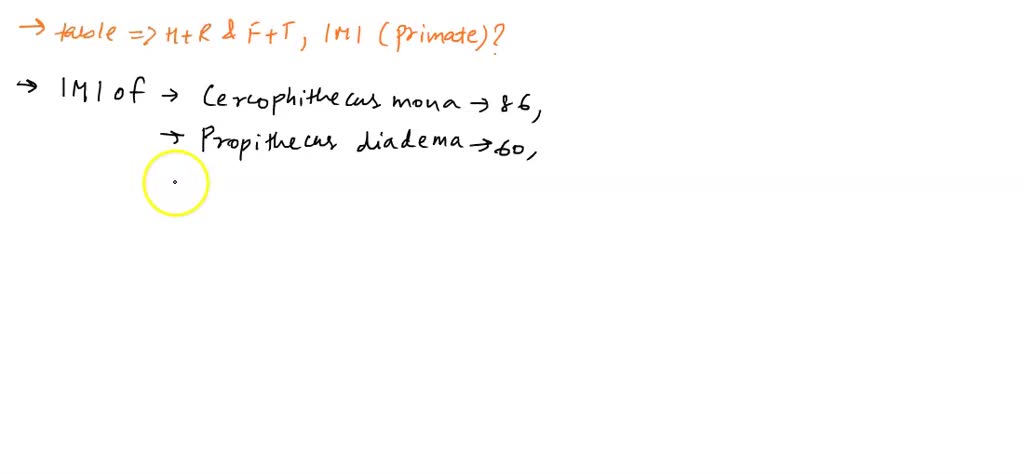 → table => H+R & F+T, IMI (primate)?
→ IMI of → Cercophithecus mona → 86,
→ Propithecus diadema → 60,